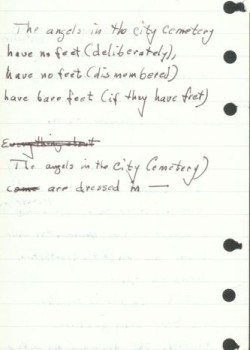 The angels in the city cemetery
have no feet (deliberately),
have no feet (dismembered)
have bare feet (if they have feet)
Everything about
The angels in the city cemetery)
come are dressed in —